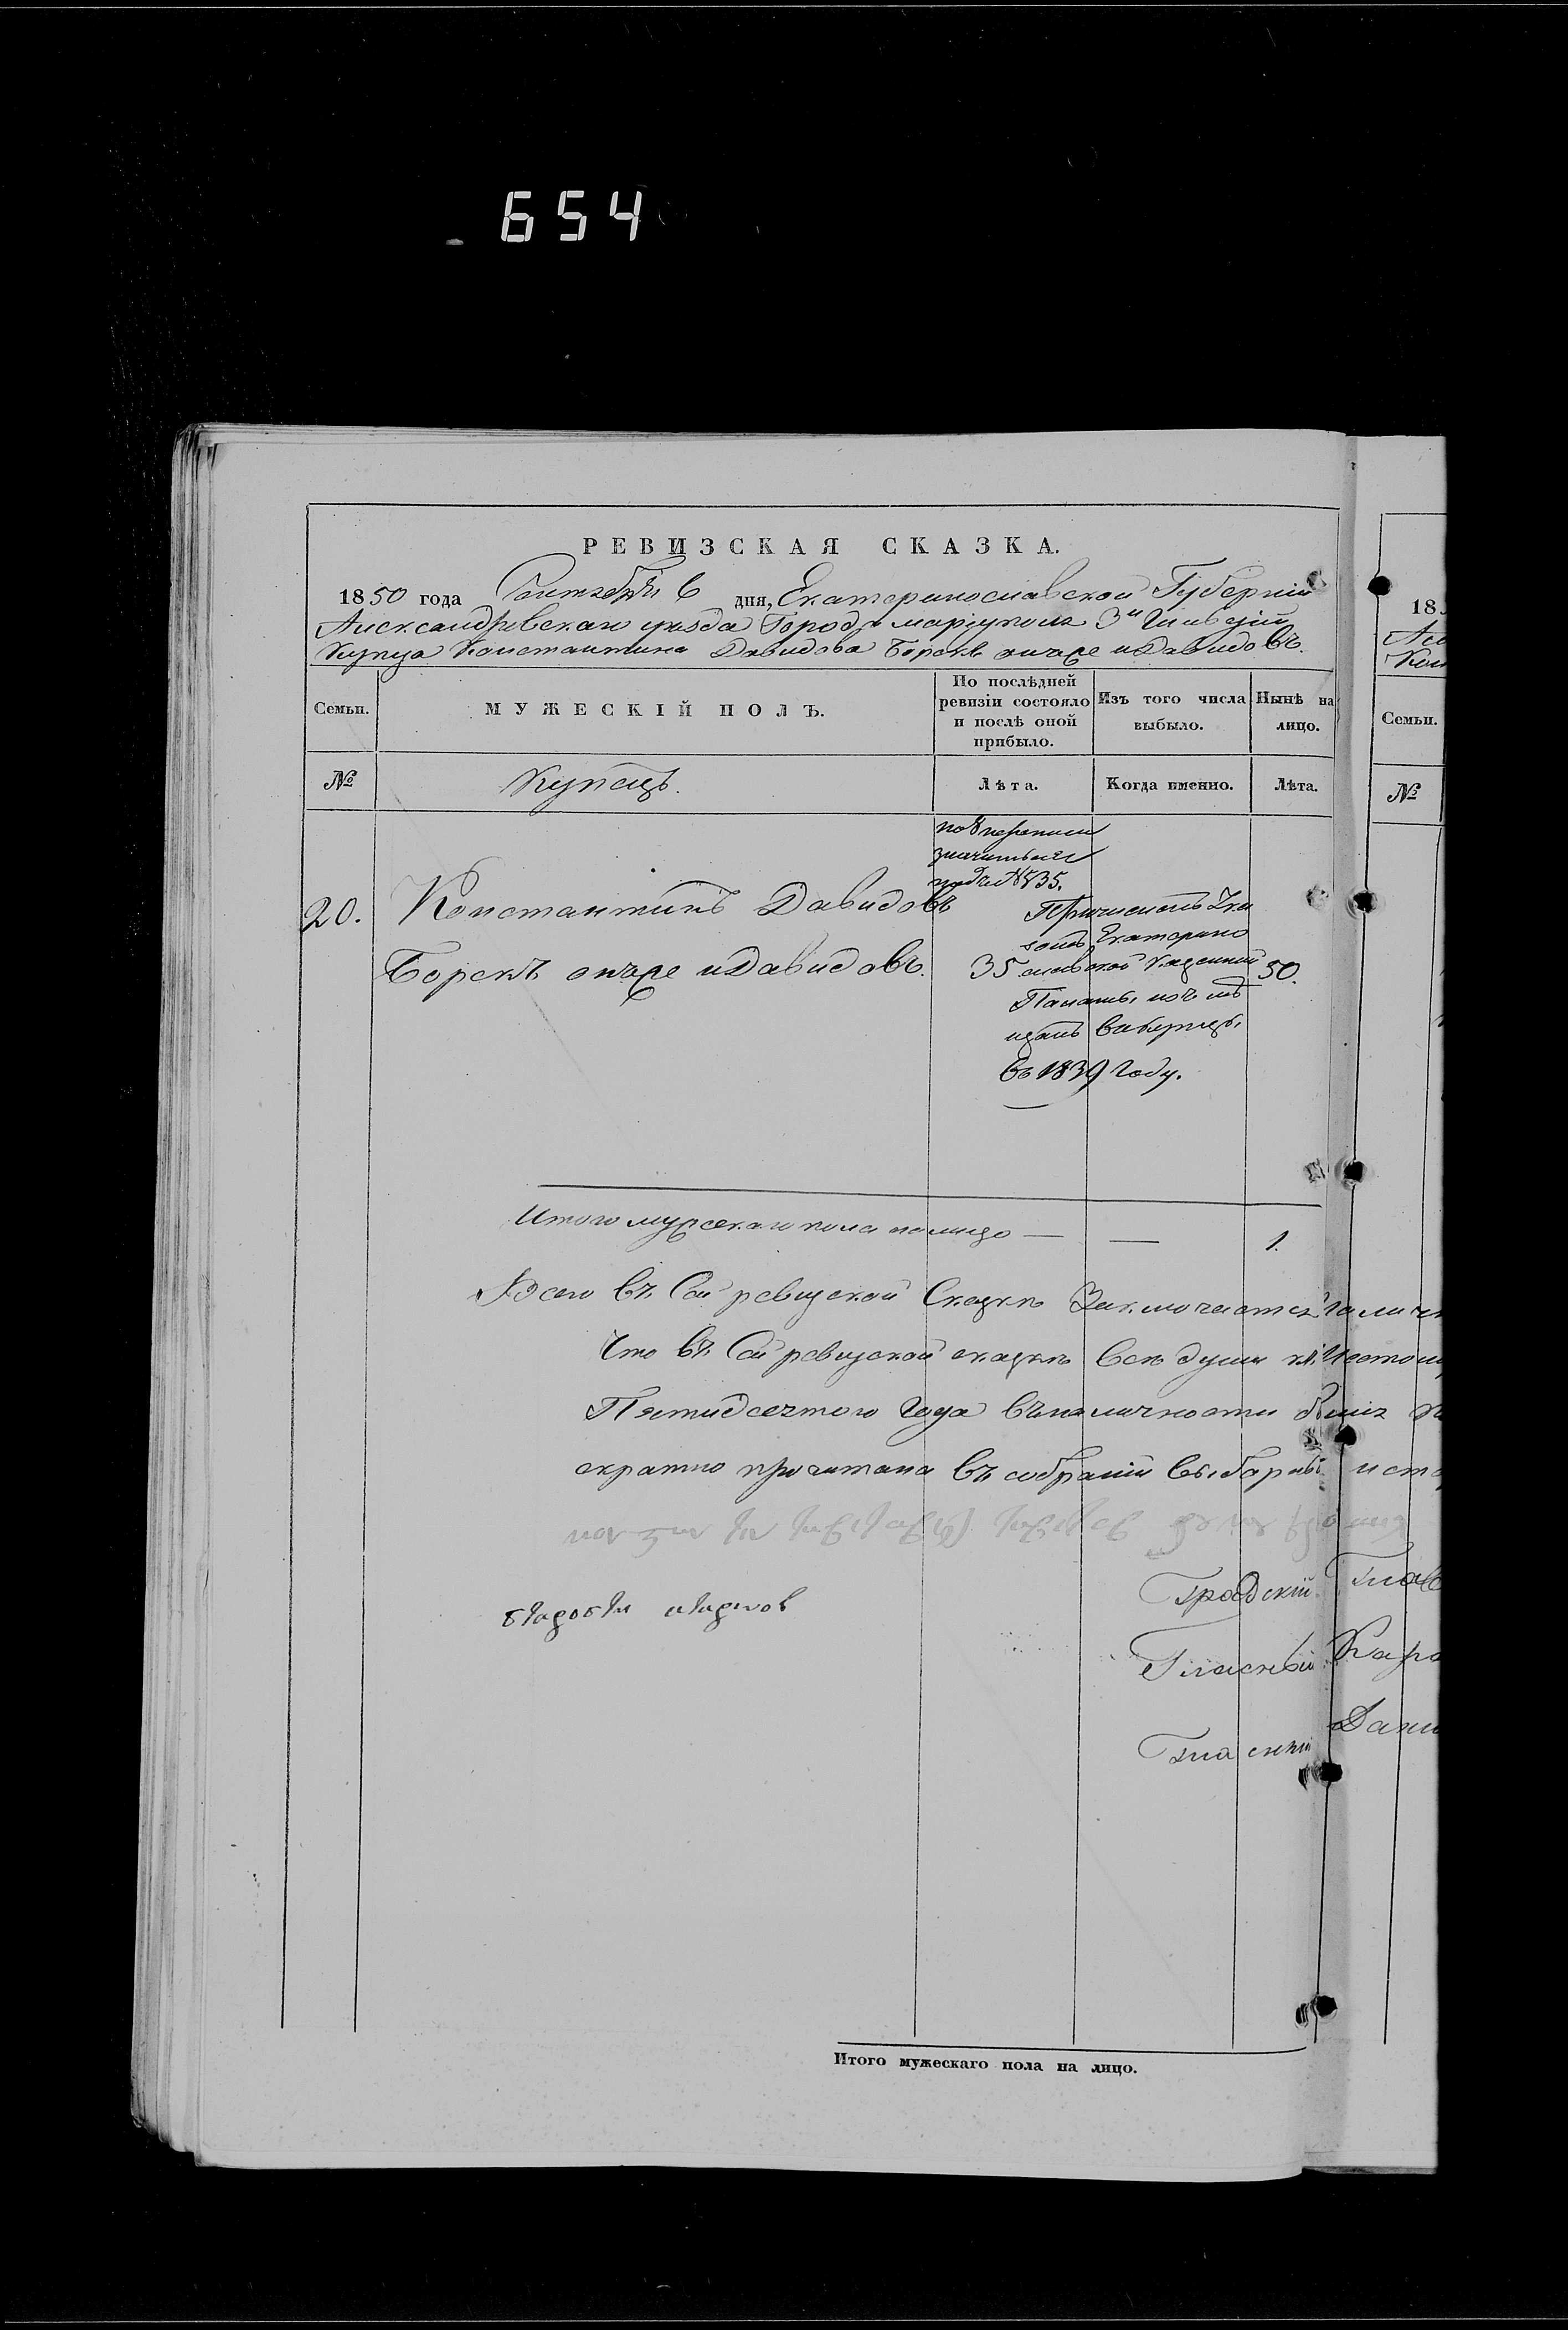 654
РЕВИЗСКАЯ СКАЗКА.
1850 года Сентября 6 дня, Екатеринославской Губерніи
Александровскаго уезда Города мариуполя 3й Гильдіи
Купца Константина Давидова Борекъ онъже и Давидовъ.
Семьи.
МУЖЕСКІЙ ПОЛЪ.
По послѣдней ревизіи состояло и послѣ оной прибыло.
Изъ того числа выбыло.
Нынѣ на лицо.
№
Купецъ.
Лѣта.
Когда именно.
Лѣта.
по 8 переписи
значиться
подъ № 35.
20.
Константинъ Давидовъ
Борекъ онъже и Давидовъ.
35
Причисленъ Ука
зомъ Екатерино
славской Казенной
Палаты, изъ мѣ
щанъ вкупцы,
въ 1839 году.
50.
Итого мужскаго пола налицо — — 1.
Всего въ Сей ревизской Сказкѣ Заключается
Что въ Сей ревизской сказкѣ всѣ души къ
Пятидесятого Года въ наличности
кратно прочитана въ собраніи выборны
Градскій Глав
Гласный Кара
Гласный Дани
Итого мужескаго пола на лицо.
18
Семьи.
№